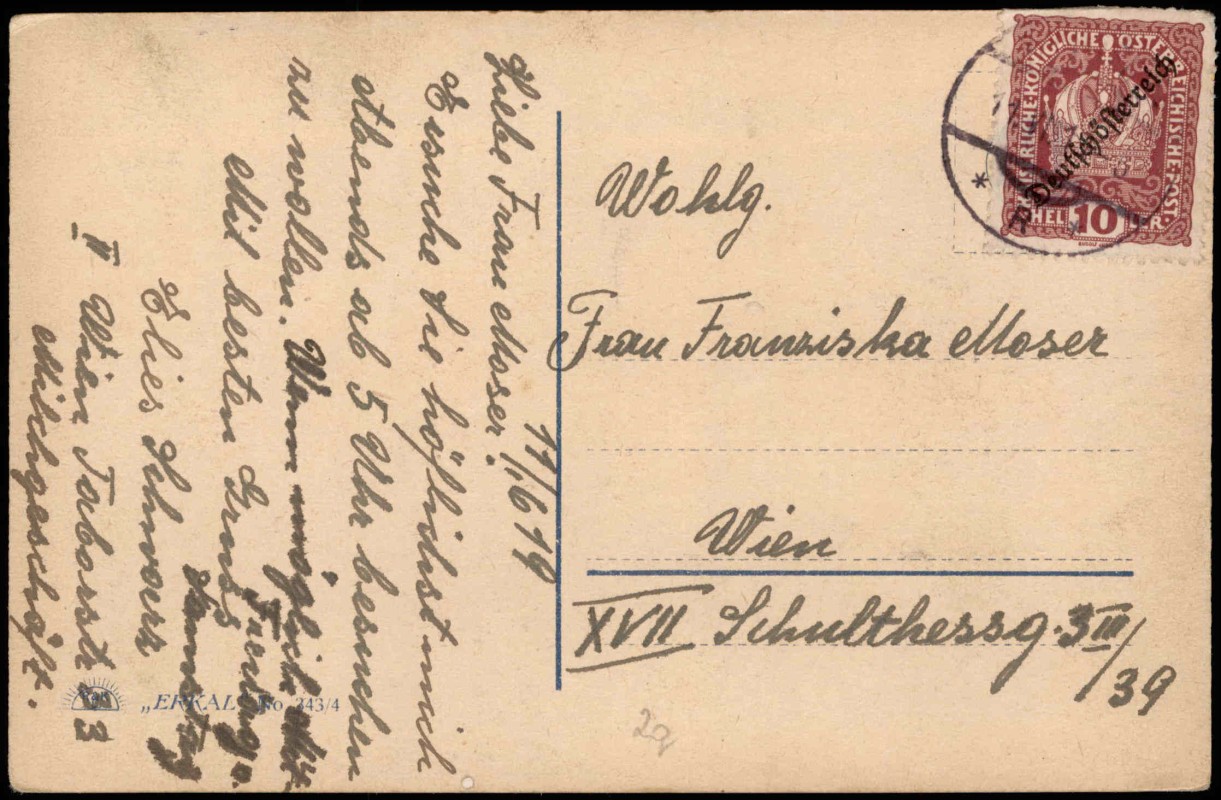 11/6 19
Liebe Frau Moser!
Ersuche Sie höflichst mich
Abends ab 5 Uhr besuchen
zu wollen. Wenn möglich
Mit besten Gruss
Samstag
Elies Schwarz
II Wien Taborstr 3
Milchgeschäft.
"ERKAL" No 343/4
KAISERLICHEKÖNIGLICHE ÖSTERREICHISCHE POST
HELLER 10
Deutschösterreich
Wohlg.
Frau Franziska Moser
Wien
XVII Schulthessg. 3 III/
39
29